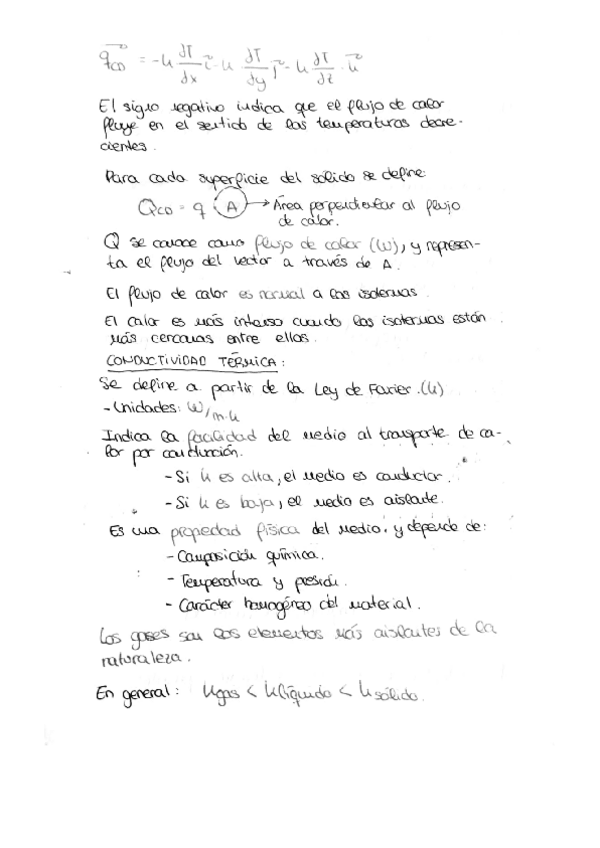 q⃗_CD = -k ∂T/∂x i⃗ - k ∂T/∂y j⃗ - k ∂T/∂z · k⃗
El signo negativo indica que el flujo de calor
fluye en el sentido de las temperaturas decre-
cientes.
Para cada superficie del sólido se define:
Q_CD = q · A → Área perpendicular al flujo
de calor.
Q se conoce como flujo de calor (W), y represen-
ta el flujo del vector a través de A.
El flujo de calor es normal a las isotermas.
El calor es más intenso cuando las isotermas están
más cercanas entre ellas.
CONDUCTIVIDAD TÉRMICA:
Se define a partir de la Ley de Fourier. (k)
- Unidades: W/m·k
Indica la facilidad del medio al transporte de ca-
lor por conducción.
- Si k es alta, el medio es conductor.
- Si k es baja, el medio es aislante.
Es una propiedad física del medio, y depende de:
- Composición química.
- Temperatura y presión.
- Carácter homogéneo del material.
Los gases son los elementos más aislantes de la
naturaleza.
En general: kgas < klíquido < ksólido.